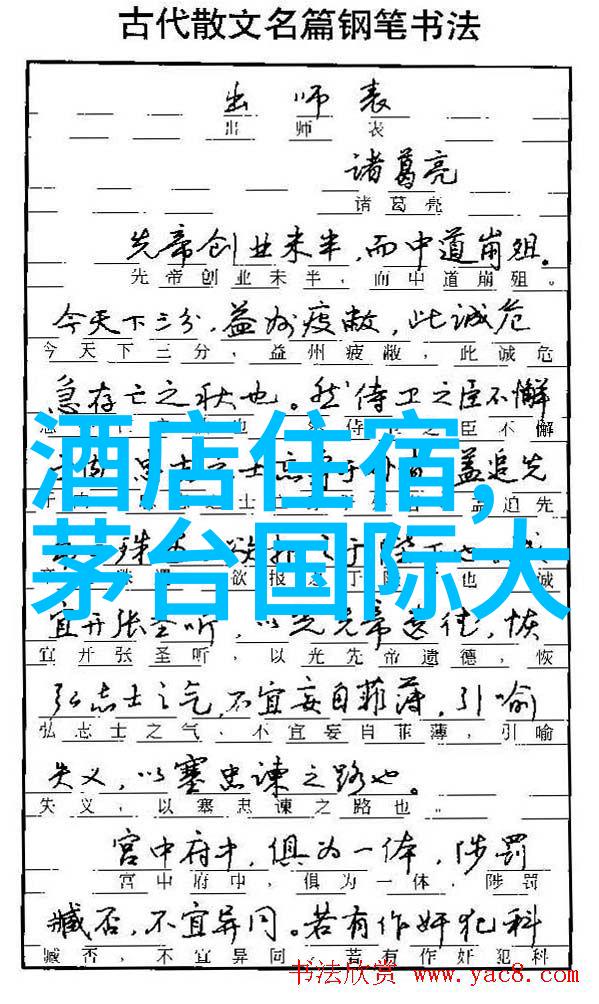 古代散文名篇钢笔书法
出师表
出师表
诸葛亮
诸葛亮
先帝创业未半,而中道崩殂。
先帝创业未半,而中道崩殂。
今天下三分,益州疲敝,此诚危
今天下三分,益州疲敝,此诚危
急存亡之秋也。然侍卫之臣不懈
不懈
酒店住宿,
茅台国际大
盖追先
追先
欲报
也 诚
宜开张圣听,以光先帝遗德,恢
宜开张圣听,以光先帝遗德,恢
弘志士之气,不宜妄自菲薄,引喻
弘志士之气,不宜妄自菲薄,引喻
失义,以塞忠谏之路也。
失义,以塞忠谏之路也。
宫中府中,俱为一体,陟罚
宫中府中,俱为一体,陟罚
臧否,不宜异同。若有作奸犯科
臧否,不宜异同。若有作奸犯科
书法欣赏 www.yac8.com